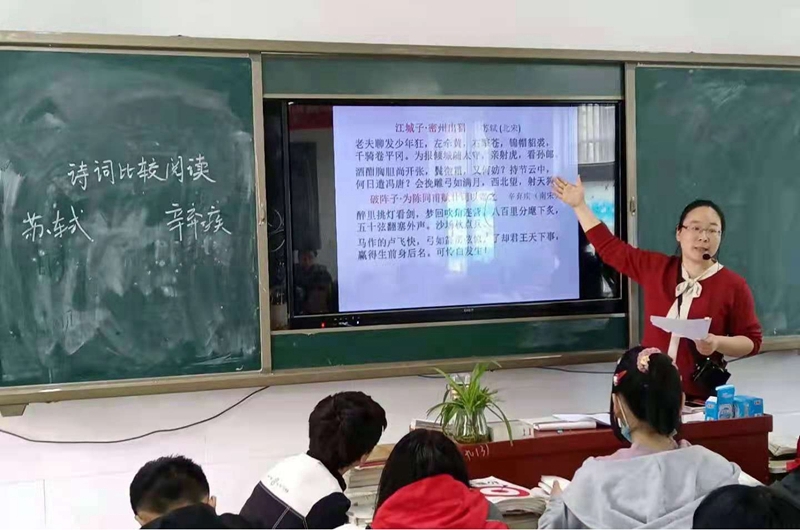 诗词比较阅读
苏轼
辛弃疾
江城子·密州出猎 苏轼(北宋)
老夫聊发少年狂,左牵黄,右擎苍,锦帽貂裘,
千骑卷平冈。为报倾城随太守,亲射虎,看孙郎。
酒酣胸胆尚开张,鬓微霜,又何妨?持节云中,
何日遣冯唐?会挽雕弓如满月,西北望,射天狼
破阵子·为陈同甫赋壮词以寄之 辛弃疾(南宋)
醉里挑灯看剑,梦回吹角连营,八百里分麾下炙,
五十弦翻塞外声。沙场秋点兵。
马作的卢飞快,弓如霹雳弦惊。了却君王天下事,
赢得生前身后名。可怜白发生!